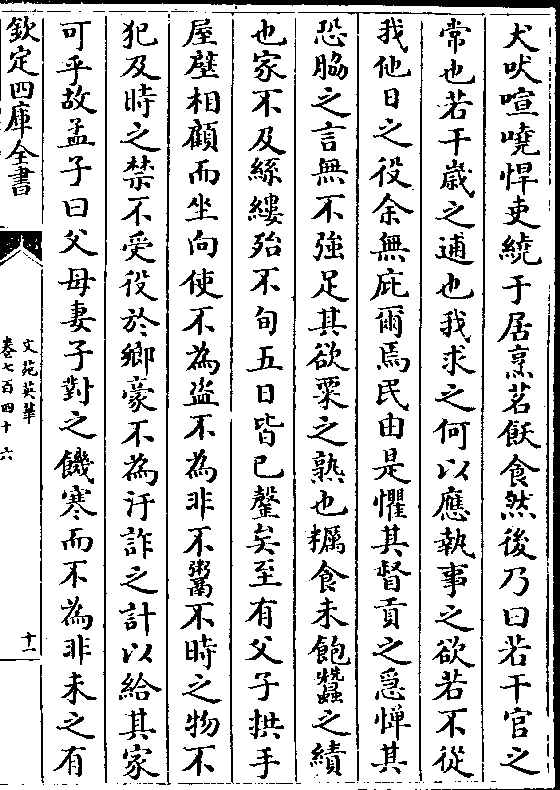 犬吠喧嘵悍吏繞于居烹茗飫食然後乃曰若干官之
常也若干歲之逋也我求之何以應執事之欲若不從
我他日之役余無庇爾焉民由是懼其督責之急憚其
恐脇之言無不強足其欲粟之熟也糲食未飽蠶之績
也家不及絲縷殆不旬五日皆已罄矣至有父子拱手
屋壁相顧而坐向使不為盜不為非不鬻不時之物不
犯及時之禁不受役於鄉豪不為汙詐之計以給其家
可乎故孟子曰父母妻子對之饑寒而不為非未之有
欽定四庫全書
文苑英華
卷七百四十六
十一